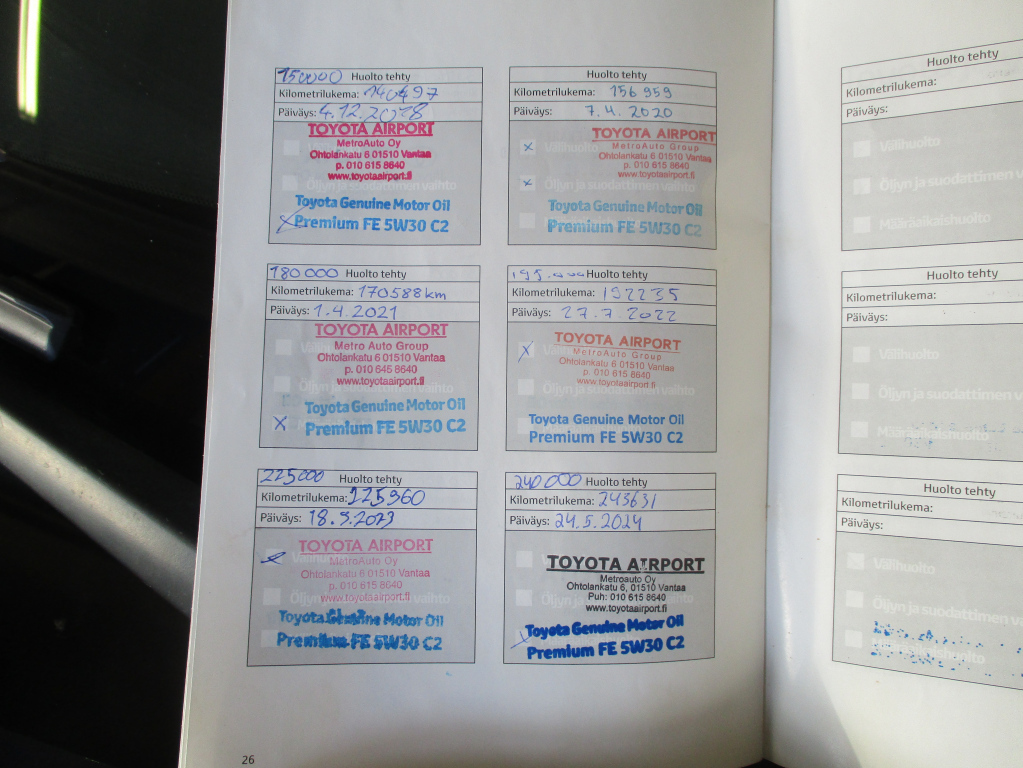 150000 Huolto tehty
Kilometrilukema: 140497
Päiväys: 4.12.2018
TOYOTA AIRPORT
MetroAuto Oy
Ohtolankatu 6 01510 Vantaa
p. 010 615 8640
www.toyotaairport.fi
Öljyn ja suodattimen vaihto
Toyota Genuine Motor Oil
Premium FE 5W30 C2
Huolto tehty
Kilometrilukema: 156959
Päiväys: 7.4.2020
TOYOTA AIRPORT
Välihuolto
MetroAuto Group
Ohtolankatu 6 01510 Vantaa
p. 010 615 8640
www.toyotaairport.fi
Öljyn ja suodattimen vaihto
Toyota Genuine Motor Oil
Premium FE 5W30 C2
180000 Huolto tehty
Kilometrilukema: 170588km
Päiväys: 1.4.2021
TOYOTA AIRPORT
Metro Auto Group
Ohtolankatu 6 01510 Vantaa
p. 010 645 8640
www.toyotaairport.fi
Öljyn ja suodattimen vaihto
Toyota Genuine Motor Oil
Premium FE 5W30 C2
195.000 Huolto tehty
Kilometrilukema: 192235
Päiväys: 27.7.2022
TOYOTA AIRPORT
MetroAuto Group
Ohtolankatu 6 01510 Vantaa
p. 010 615 8640
www.toyotaairport.fi
Öljyn ja suodattimen vaihto
Toyota Genuine Motor Oil
Premium FE 5W30 C2
225000 Huolto tehty
Kilometrilukema: 225360
Päiväys: 18.9.2023
TOYOTA AIRPORT
MetroAuto Oy
Ohtolankatu 6 01510 Vantaa
p. 010 615 8640
www.toyotaairport.fi
Öljyn ja suodattimen vaihto
Toyota Genuine Motor Oil
Premium FE 5W30 C2
240000 Huolto tehty
Kilometrilukema: 243631
Päiväys: 24.5.2024
TOYOTA AIRPORT
Metroauto Oy
Ohtolankatu 6, 01510 Vantaa
Puh: 010 615 8640
www.toyotaairport.fi
Toyota Genuine Motor Oil
Premium FE 5W30 C2
26
Huolto tehty
Kilometrilukema:
Päiväys:
Välihuolto
Öljyn ja suodattimen
Määräaikaishuolto
Huolto tehty
Kilometrilukema:
Päiväys:
Välihuolto
Öljyn ja suodattimen
Määräaikaishuolto
Huolto tehty
Kilometrilukema:
Päiväys:
Välihuolto
Öljyn ja suodattimen
Määräaikaishuolto